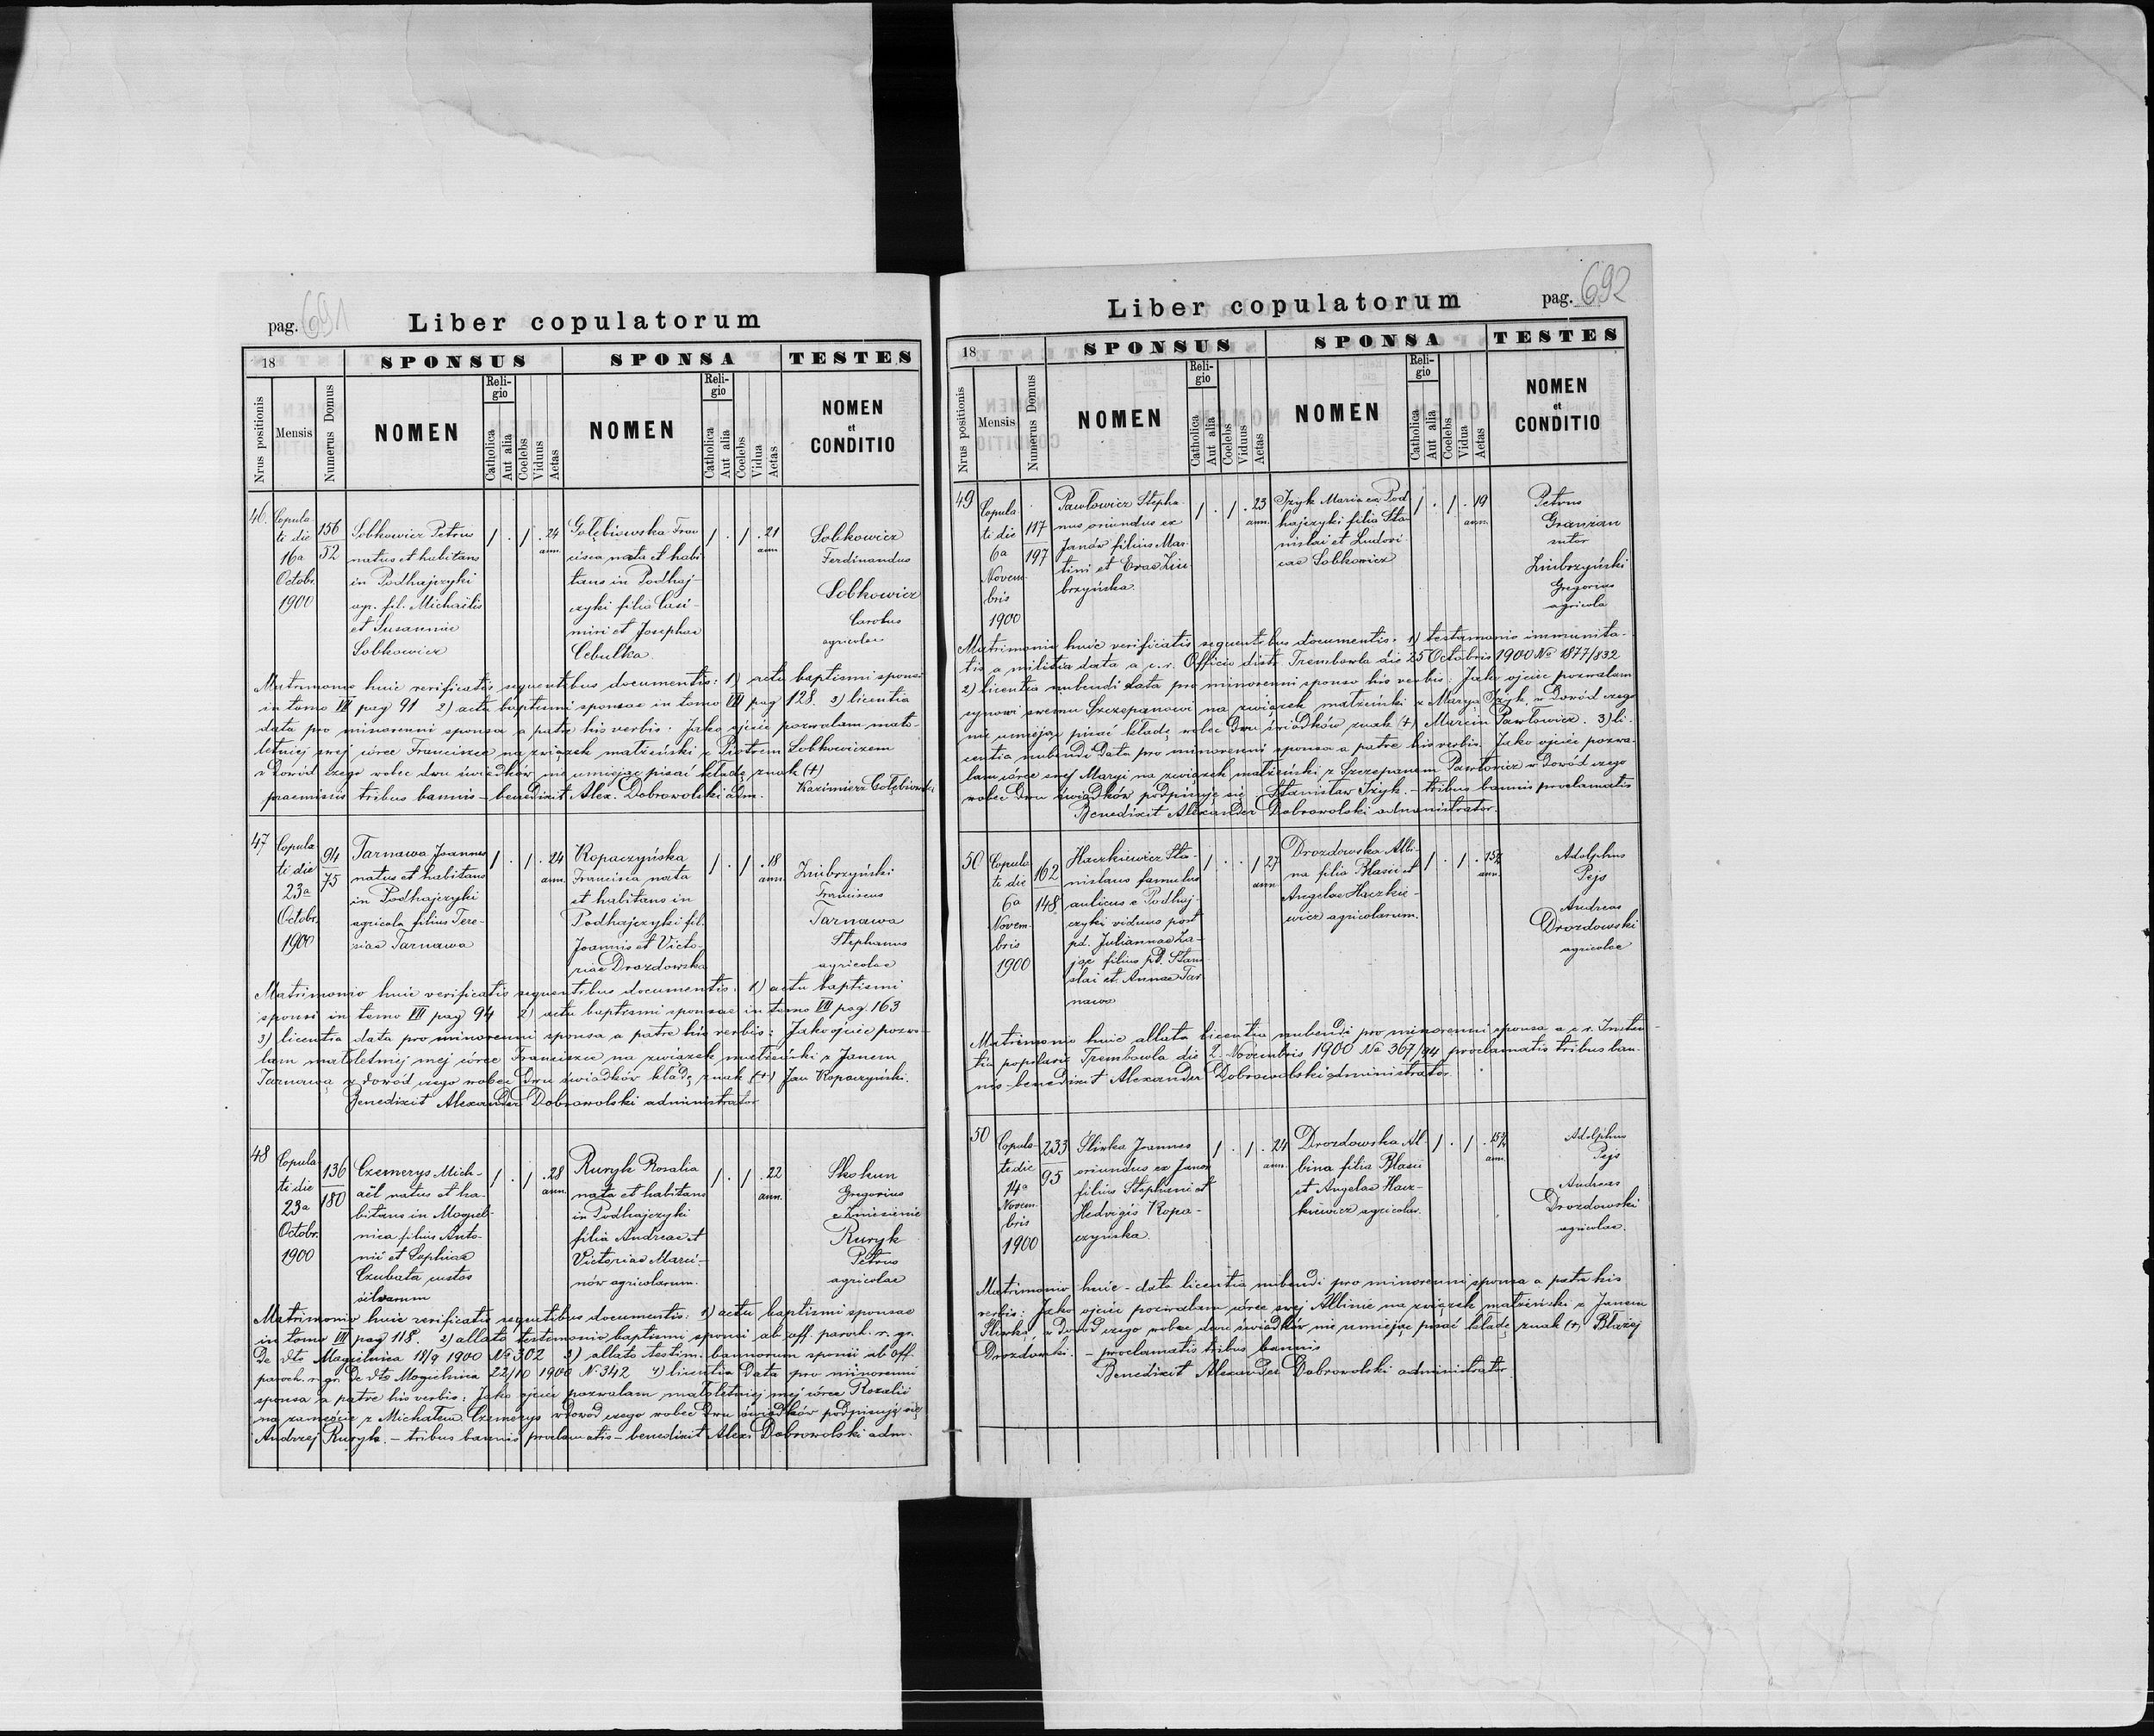 pag. 691
Liber copulatorum
18
SPONSUS
SPONSA
TESTES
Nrus positionis
Mensis
Numerus Domus
NOMEN
Reli-
gio
Catholica
Aut alia
Coelebs
Viduus
Aetas
NOMEN
Reli-
gio
Catholica
Aut alia
Coelebs
Vidua
Aetas
NOMEN
et
CONDITIO
46.
Copula
ti die
16a
Octobr.
1900
156
52
Sobkowicz Petrus
natus et habitans
in Podhajczyki
ap. fil. Michaëlis
et Susannae
Sobkowicz
1 . 1 . 24
ann.
Gołębiowska Fran
cisca nata et habi
tans in Podhaj-
czyki filia Casi-
miri et Josephae
Cebulka.
1 . 1 . 21
ann.
Sobkowicz
Ferdinandus
Sobkowicz
Carolus
agricolae
Matrimonio huic verificatis sequentibus documentis: 1) actu baptismi sponsi
in tomo VII pag 91 2) actu baptismi sponsae in tomo VII pag 128. 3) licentia
data pro minorenni sponsa a patre his verbis: Jako ojciec pozwalam mało-
letniej swej córce Franciszce na związek małżeński z Piotrem Sobkowiczem
w dowód czego wobec dwu świadków nie umiejąc pisać kładę znak (+)
Kazimierz Gołębiowski
praemissis tribus bannis - benedixit Alex. Dobrowolski adm.
47
Copula
ti die
23a
Octobr.
1900
94
75
Tarnawa Joannes
natus et habitans
in Podhajczyki
agricola filius Tere-
siae Tarnawa
1 . 1 . 24
ann.
Kopaczyńska
Francisca nata
et habitans in
Podhajczyki fil.
Joannis et Victo-
riae Drozdowska
1 . 1 . 18
ann.
Zimbrzyński
Franciscus
Tarnawa
Stephanus
agricolae
Matrimonio huic verificatis sequentibus documentis: 1) actu baptismi
sponsi in tomo VII pag 94 2) actu baptismi sponsae in tomo VII pag. 163
3) licentia data pro minorenni sponsa a patre his verbis: Jako ojciec pozwa-
lam małoletniej mej córce Franciszce na związek małżeński z Janem
Tarnawą w dowód czego wobec dwu świadków kładę znak (+) Jan Kopaczyński.
Benedixit Alexander Dobrowolski administrator
48
Copula
ti die
23a
Octobr.
1900
136
180
Czemerys Mich-
aël natus et ha-
bitans in Mogiel-
nica filius Anto-
nii et Sophiae
Czubata custos
silvarum
1 . 1 . 28
ann.
Ruryk Rosalia
nata et habitans
in Podhajczyki
filia Andreae et
Victoriae Marci-
nów agricolarum.
1 . 1 . 22
ann.
Skokun
Gregorius
Ruryk
Petrus
agricolae
Matrimonio huic verificatis sequentibus documentis: 1) actu baptismi sponsae
in tomo VII pag 118. 2) allato testimonio baptismi sponsi ab off. paroch. r. gr.
de dto Mogielnica 18/9 1900 No 302 3) allato testim. bannorum sponsi ab off.
paroch. r. gr. de dto Mogielnica 22/10 1900 N. 342 4) licentia data pro minorenni
sponsa a patre his verbis: Jako ojciec pozwalam małoletniej mej córce Rozalii
na zamęście z Michałem Czemerys w dowód czego wobec dwu świadków podpisuję się
Andrzej Ruryk. - tribus bannis proclamatis - benedixit Alex. Dobrowolski adm.
Liber copulatorum
pag. 692
18
SPONSUS
SPONSA
TESTES
Nrus positionis
Mensis
Numerus Domus
NOMEN
Reli-
gio
Catholica
Aut alia
Coelebs
Viduus
Aetas
NOMEN
Reli-
gio
Catholica
Aut alia
Coelebs
Vidua
Aetas
NOMEN
et
CONDITIO
49
Copula
ti die
6a
Novem-
bris
1900
117
197
Pawłowicz Stepha-
nus oriundus ex
Janów filius Mar-
tini et Evae Zim-
brzyńska.
1 . 1 . 23
ann.
Izyk Maria ex Pod
hajczyki filia Sta-
nislai et Ludovi-
cae Sobkowicz
1 . 1 . 19
ann.
Petrus
Granzan
sutor
Zimbrzyński
Gregorius
agricola
Matrimonio huic verificatis sequentibus documentis: 1) testimonio immunita-
tis a militia data a c. r. Officio distr. Trembowla die 25 Octobris 1900 No 1877/832
2) licentia nubendi data pro minorenni sponso his verbis: Jako ojciec pozwalam
synowi swemu Szczepanowi na związek małżeński z Maryą Izyk, w dowód czego
nie umiejąc pisać kładę wobec dwu świadków znak (+) Marcin Pawłowicz. 3) li-
centia nubendi data pro minorenni sponsa a patre his verbis: Jako ojciec pozwa-
lam córce swej Maryi na związek małżeński z Szczepanem Pawłowicz w dowód czego
wobec dwu świadków podpisuję się Stanisław Izyk. - tribus bannis proclamatis
Benedixit Alexander Dobrowolski administrator.
50
Copula
ti die
6a
Novem-
bris
1900
162
148
Haczkiewicz Sta-
nislaus famulus
aulicus e Podhaj-
czyki viduus post
pd. Juliannae Za-
jąc filius pd. Stani
slai et Annae Tar
nawa
1 . . 1 27
ann.
Drozdowska Albi-
na filia Blasii et
Angelae Haczkie-
wicz agricolarum.
1 . 1 . 15½
ann.
Adolphus
Pejs
Andreas
Drozdowski
agricolae
Matrimonio huic allata licentia nubendi pro minorenni sponsa a c. r. Instan-
tia pupilari Trembowla die 2. Novembris 1900 No 367/94 proclamatis tribus ban-
nis - benedixit Alexander Dobrowolski administrator.
50
Copula-
ti die
14a
Novem-
bris
1900
233
95
Śliwka Joannes
oriundus ex Janów
filius Stephani et
Hedvigis Kopa-
czyńska.
1 . 1 . 24
ann.
Drozdowska Al-
bina filia Blasii
et Angelae Hacz-
kiewicz agricolar.
1 . 1 . 15½
ann.
Adolphus
Pejs
Andreas
Drozdowski
agricolae.
Matrimonio huic - data licentia nubendi pro minorenni sponsa a patre his
verbis: Jako ojciec pozwalam córce swej Albinie na związek małżeński z Janem
Śliwką, w dowód czego wobec dwu świadków nie umiejąc pisać kładę znak (+) Błażej
Drozdowski. - proclamatis tribus bannis
Benedixit Alexander Dobrowolski administrator.